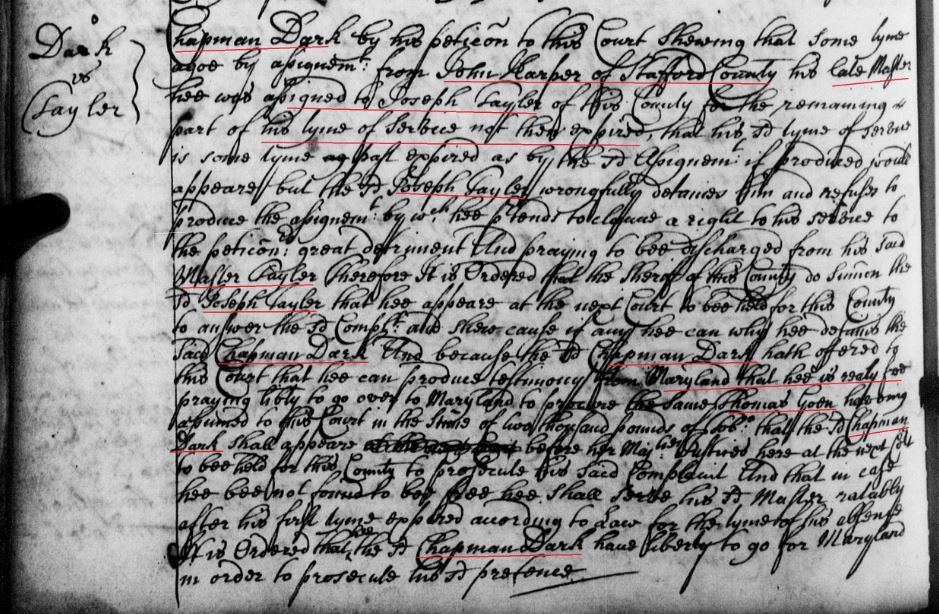 Dark
vs
Tayler
Chapman Dark by his peticon to this Court shewing that some tyme
agoe by assignemt: from John Harper of Stafford County his late Master
hee was assigned to Joseph Tayler of this County for the remaining
part of his tyme of Service not then expired, that his sd tyme of Service
is some tyme past expired as by the sd Assignemt if produced would
appeare, but the sd Joseph Tayler wrongfully detaines him and refuses to
produce the assignemt: by wch hee ptends to clayme a right to his service to
the peticonrs great detriment And praying to bee discharged from his said
Master Tayler Therefore It is Ordered that the Sheriff of this County do Sumon the
sd Joseph Tayler that hee appeare at the next Court to bee held for this County
to answer the sd Complt: and shew cause if any hee can why hee detaines the
said Chapman Dark And because the sd Chapman Dark hath offered to
this Court that hee can produce testimony from Maryland that hee is realy free
praying libty to go over to Maryland to procure the same Thomas Goen haveing
assumed to this Court in the Sume of two thousand pounds of tobco that the sd Chapman
Dark shall appeare before her Majties Justices here at the next Court
to bee held for this County to prosecute his said Complaint And that in case
hee bee not found to bee free hee shall serve his sd Master ratably
after his first tyme expired according to Law for the tyme of his absence
It is Ordered that hee the sd Chapman Dark have liberty to go for Maryland
in order to prosecute his sd pretence